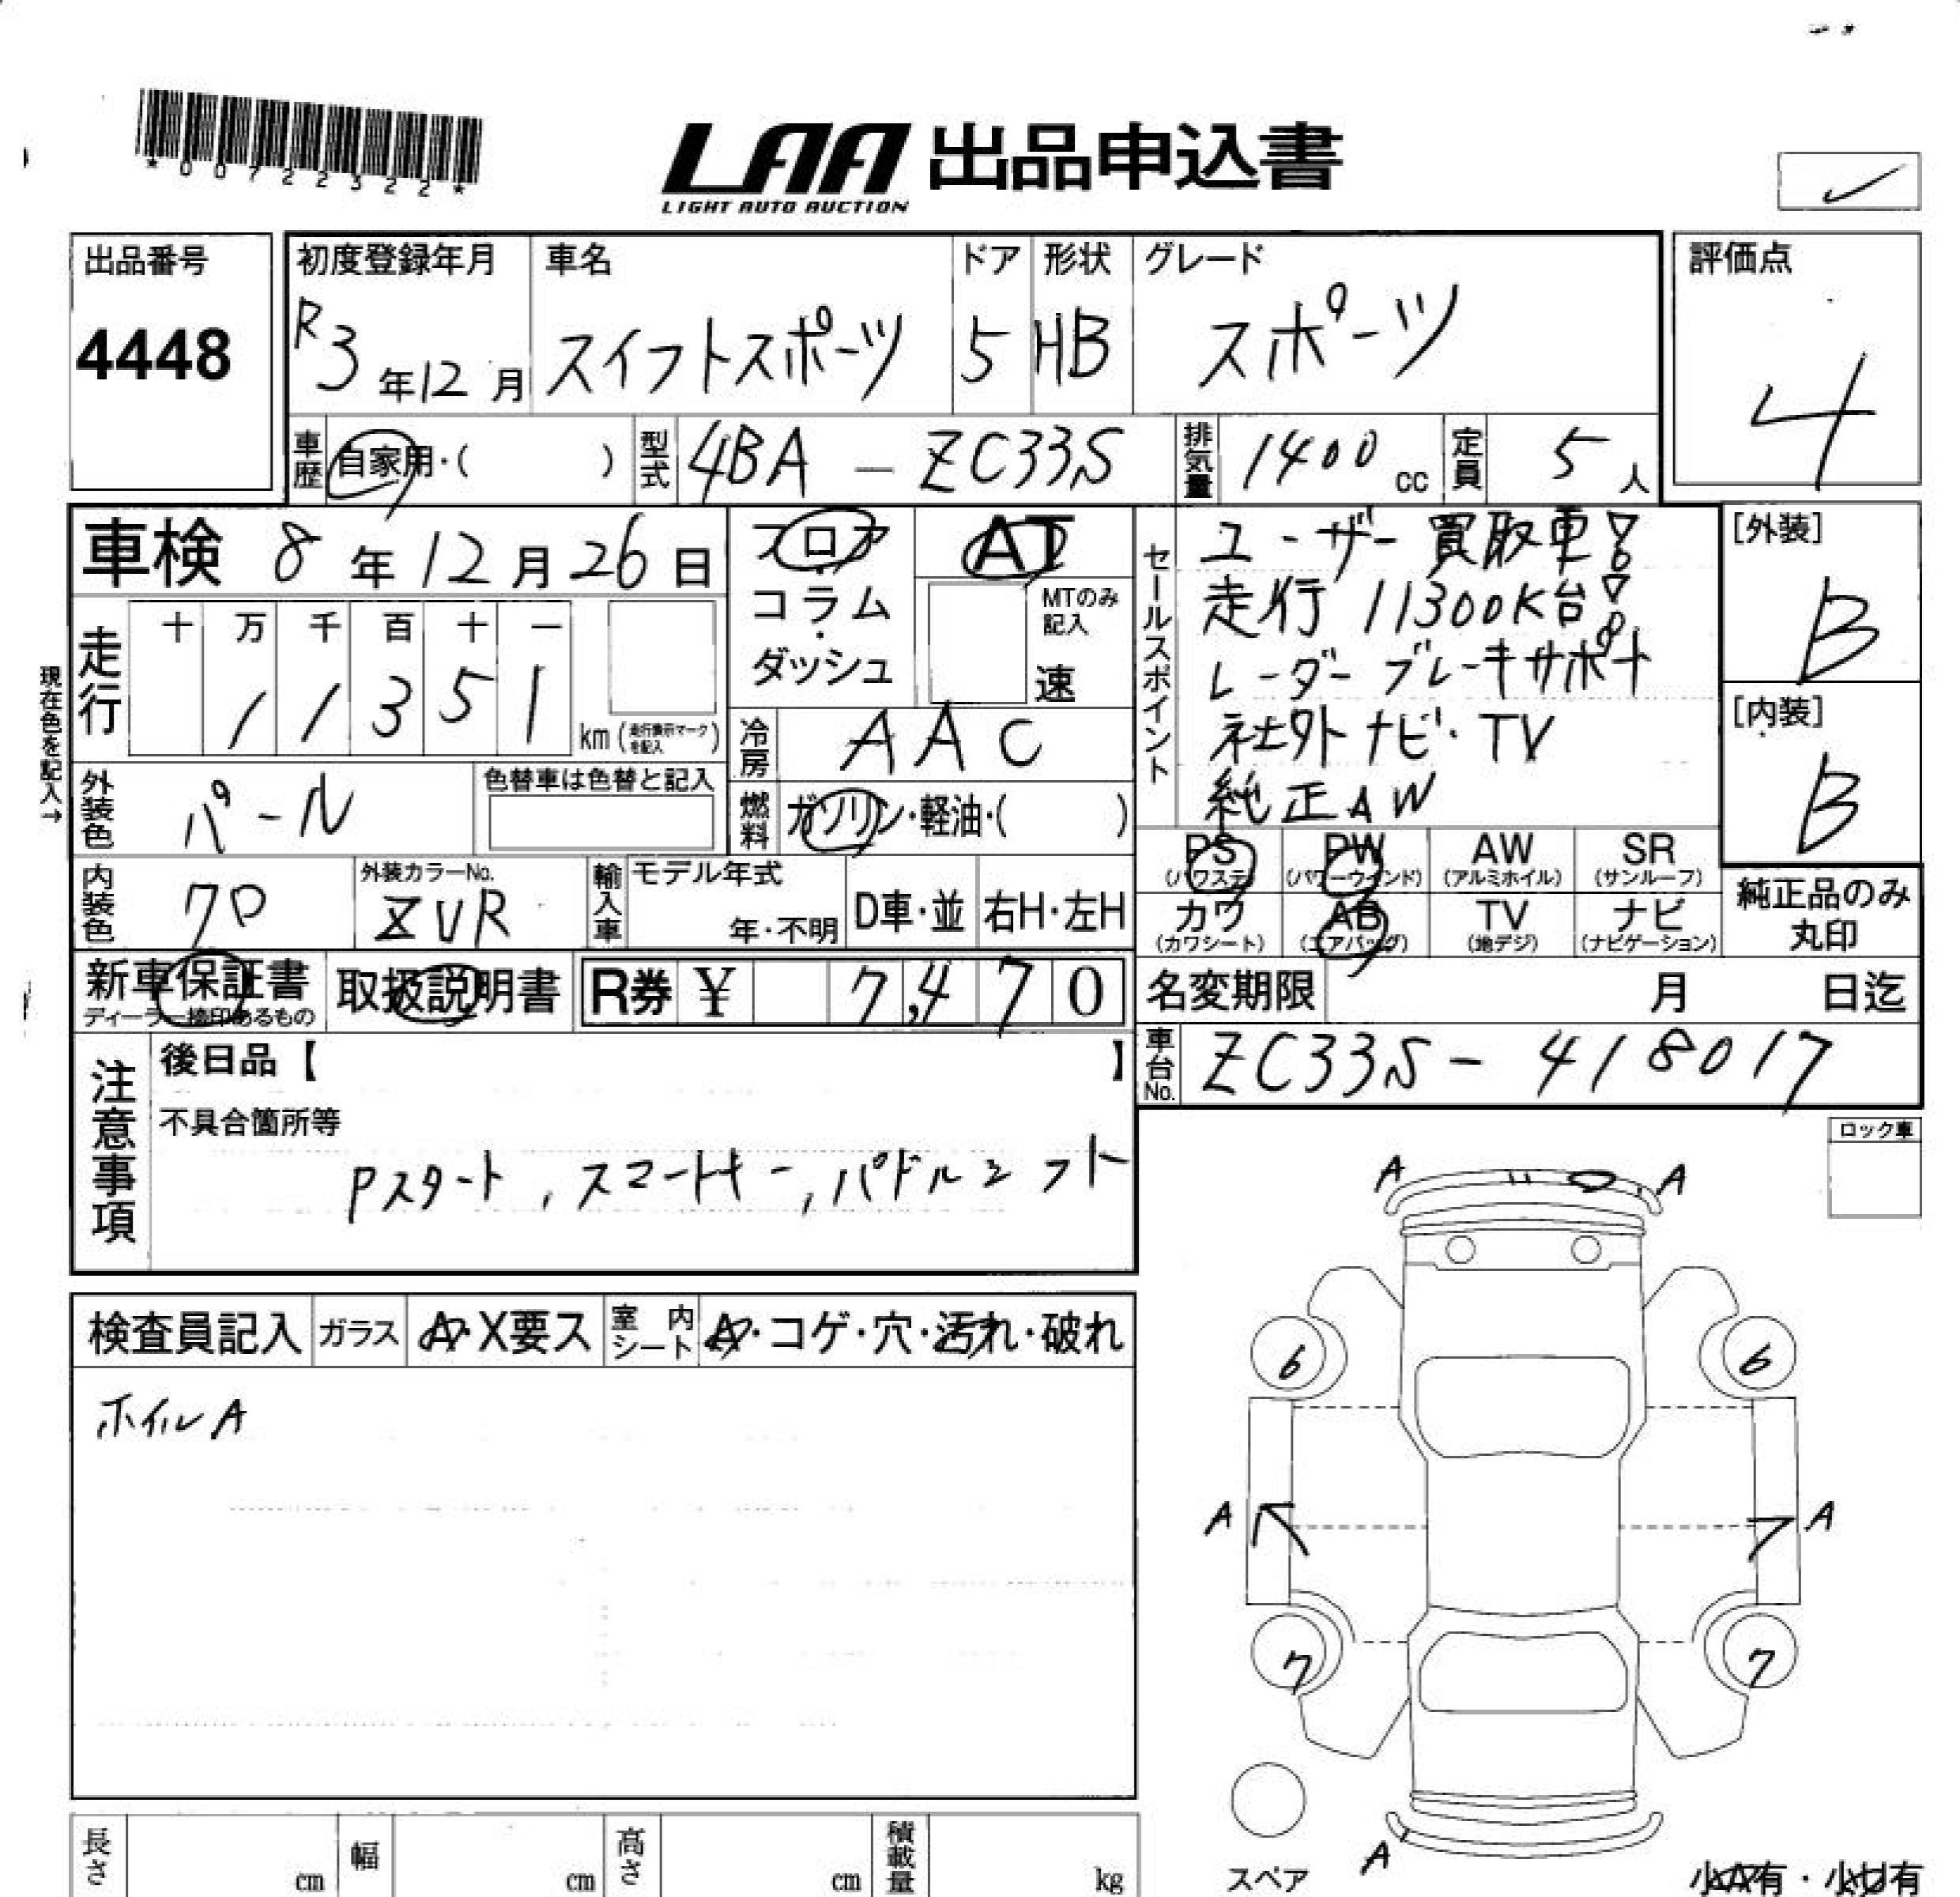 *00722322*
LAA 出品申込書
LIGHT AUTO AUCTION
出品番号
4448
初度登録年月
R3年12月
車名
スイフトスポーツ
ドア
5
形状
HB
グレード
スポーツ
評価点
4
車歴 自家用・( )
型式 4BA - ZC33S
排気量 1400 cc
定員 5人
車検 8年12月26日
フロア・コラム・ダッシュ
AT
MTのみ記入
速
セールスポイント
ユーザー買取車!
走行11300K台!
レーダーブレーキサポート
社外ナビ・TV
純正AW
[外装]
B
[内装]
B
現在色を記入→
走行
十 万 千 百 十 一
1 1 3 5 1 km (走行表示マークを記入)
冷房 AAC
外装色 パール
色替車は色替と記入
燃料 ガソリン・軽油・( )
PS (パワステ)
PW (パワーウインド)
AW (アルミホイル)
SR (サンルーフ)
カワ (カワシート)
AB (エアバッグ)
TV (地デジ)
ナビ (ナビゲーション)
純正品のみ丸印
内装色 クロ
外装カラーNo.
ZVR
輸入車
モデル年式
年・不明
D車・並
右H・左H
新車保証書
ディーラー捺印あるもの
取扱説明書
R券 ¥ 7,470
名変期限 月 日迄
車台No. ZC33S - 418017
注意事項
後日品【 】
不具合箇所等
Pスタート,スマートキー,パドルシフト
ロック車
検査員記入
ガラス A・X要ス
室内シート A・コゲ・穴・汚れ・破れ
ホイルA
A A
6 6
A A
7 7
A
スペア
小A有・小U有
長さ cm
幅 cm
高さ cm
積載量 kg